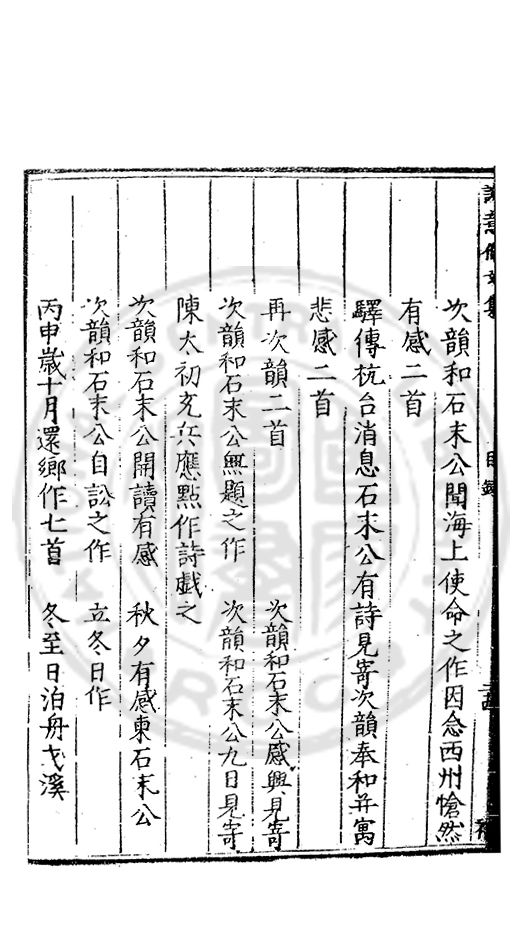 次韻和石末公聞海上使命之作因念西州愴然
有感二首
驛傳杭台消息石末公有詩見寄次韻奉和并寓
悲感二首
再次韻二首 次韻和石末公感興見寄
次韻和石末公無題之作 次韻和石末公九日見寄
陳太初充兵應點作詩戲之
次韻和石末公開讀有感 秋夕有感柬石末公
次韻和石末公自訟之作 立冬日作
丙申歲十月還鄉作七首 冬至日泊舟戈溪